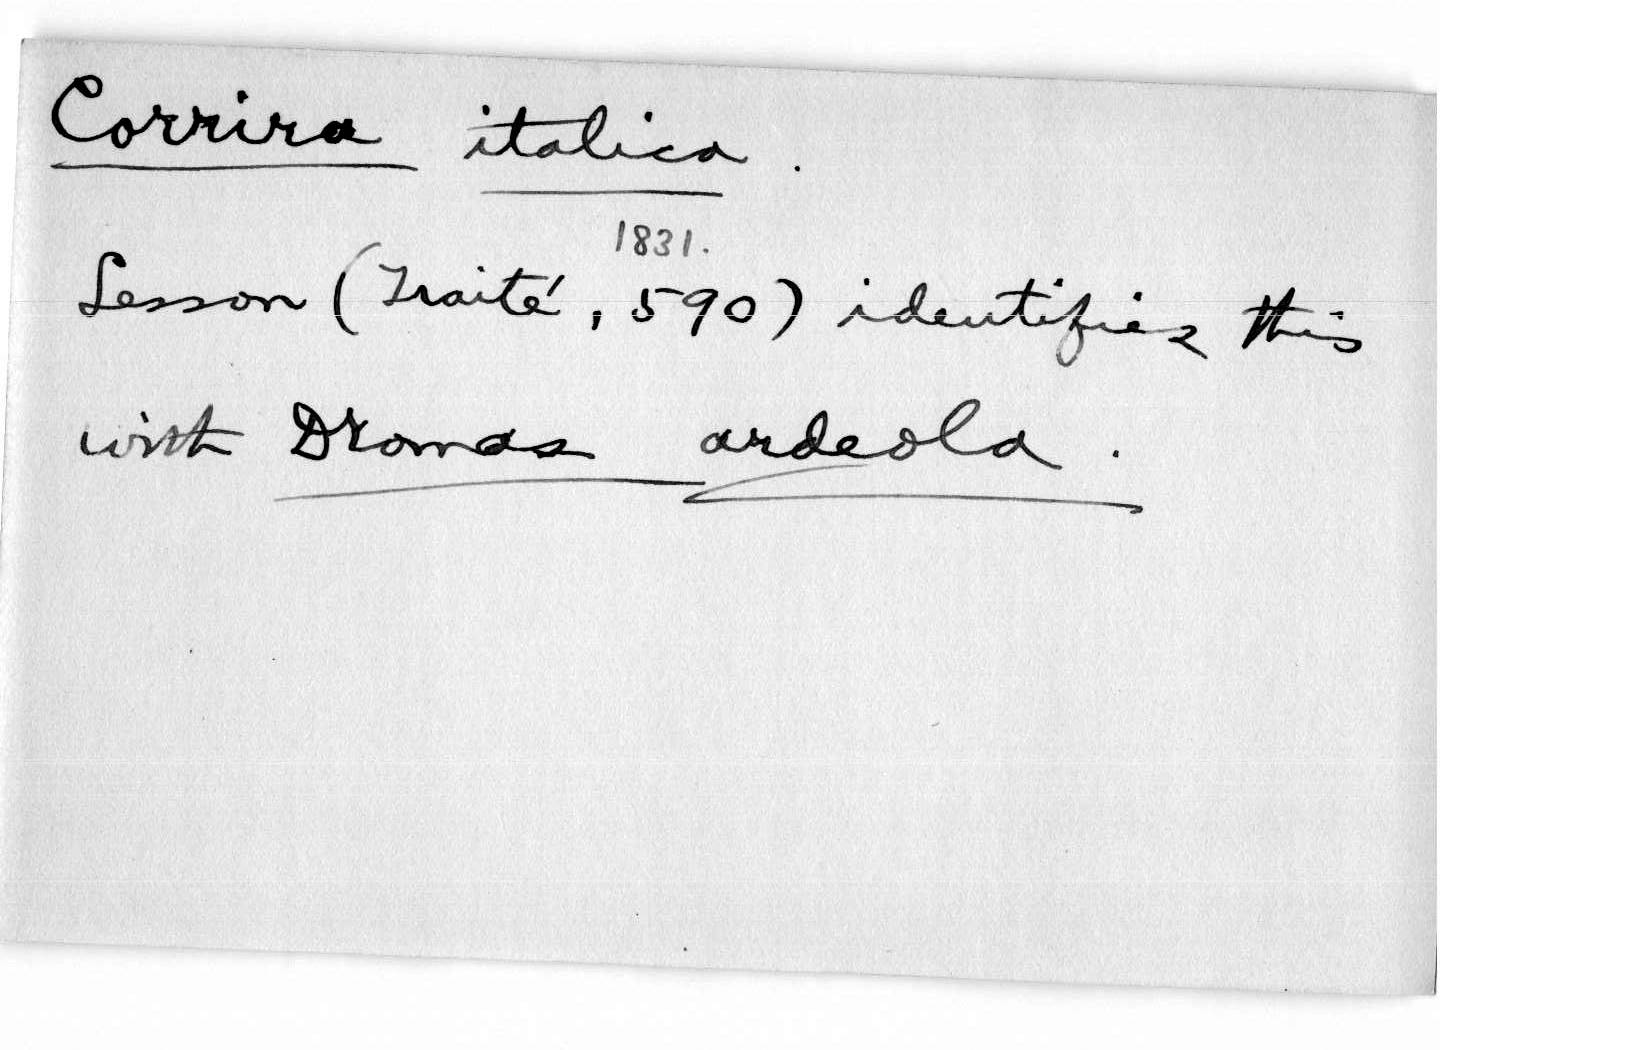 Corrira italica.
1831.
Lesson (Traité, 590) identifies this
with Dromas ardeola.